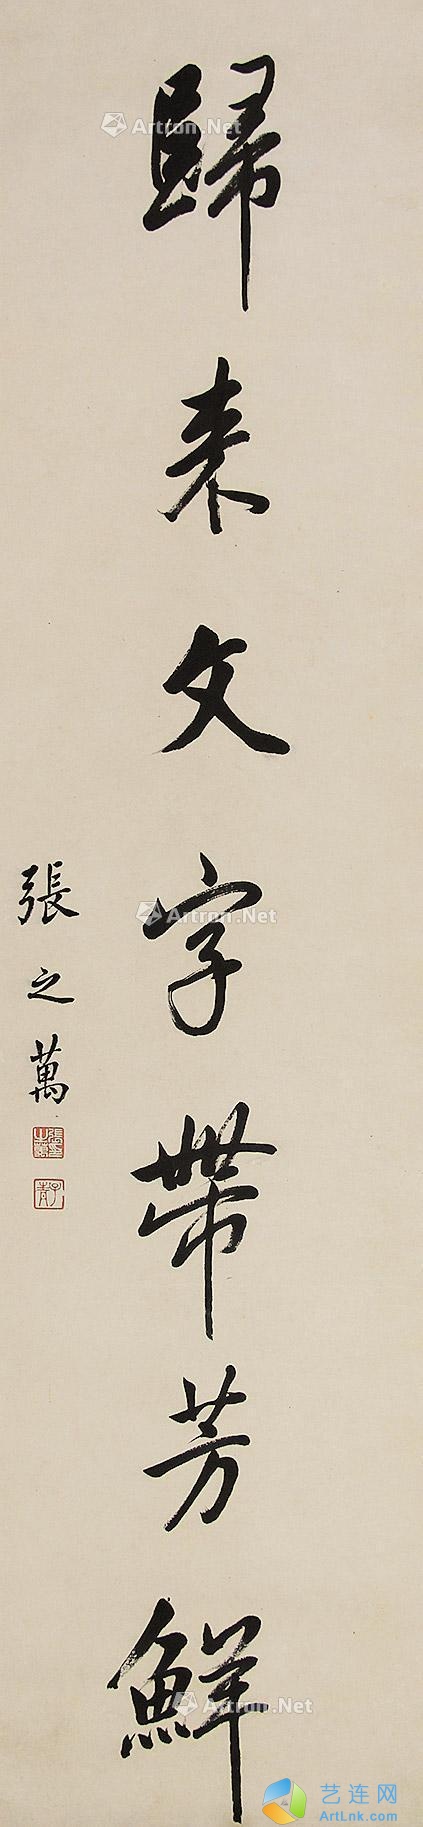 歸来文字帶芳鮮
張之萬
張之萬
子青
Artron.Net
Artron.Net
Artron.Net
艺连网
ArtLnk.com